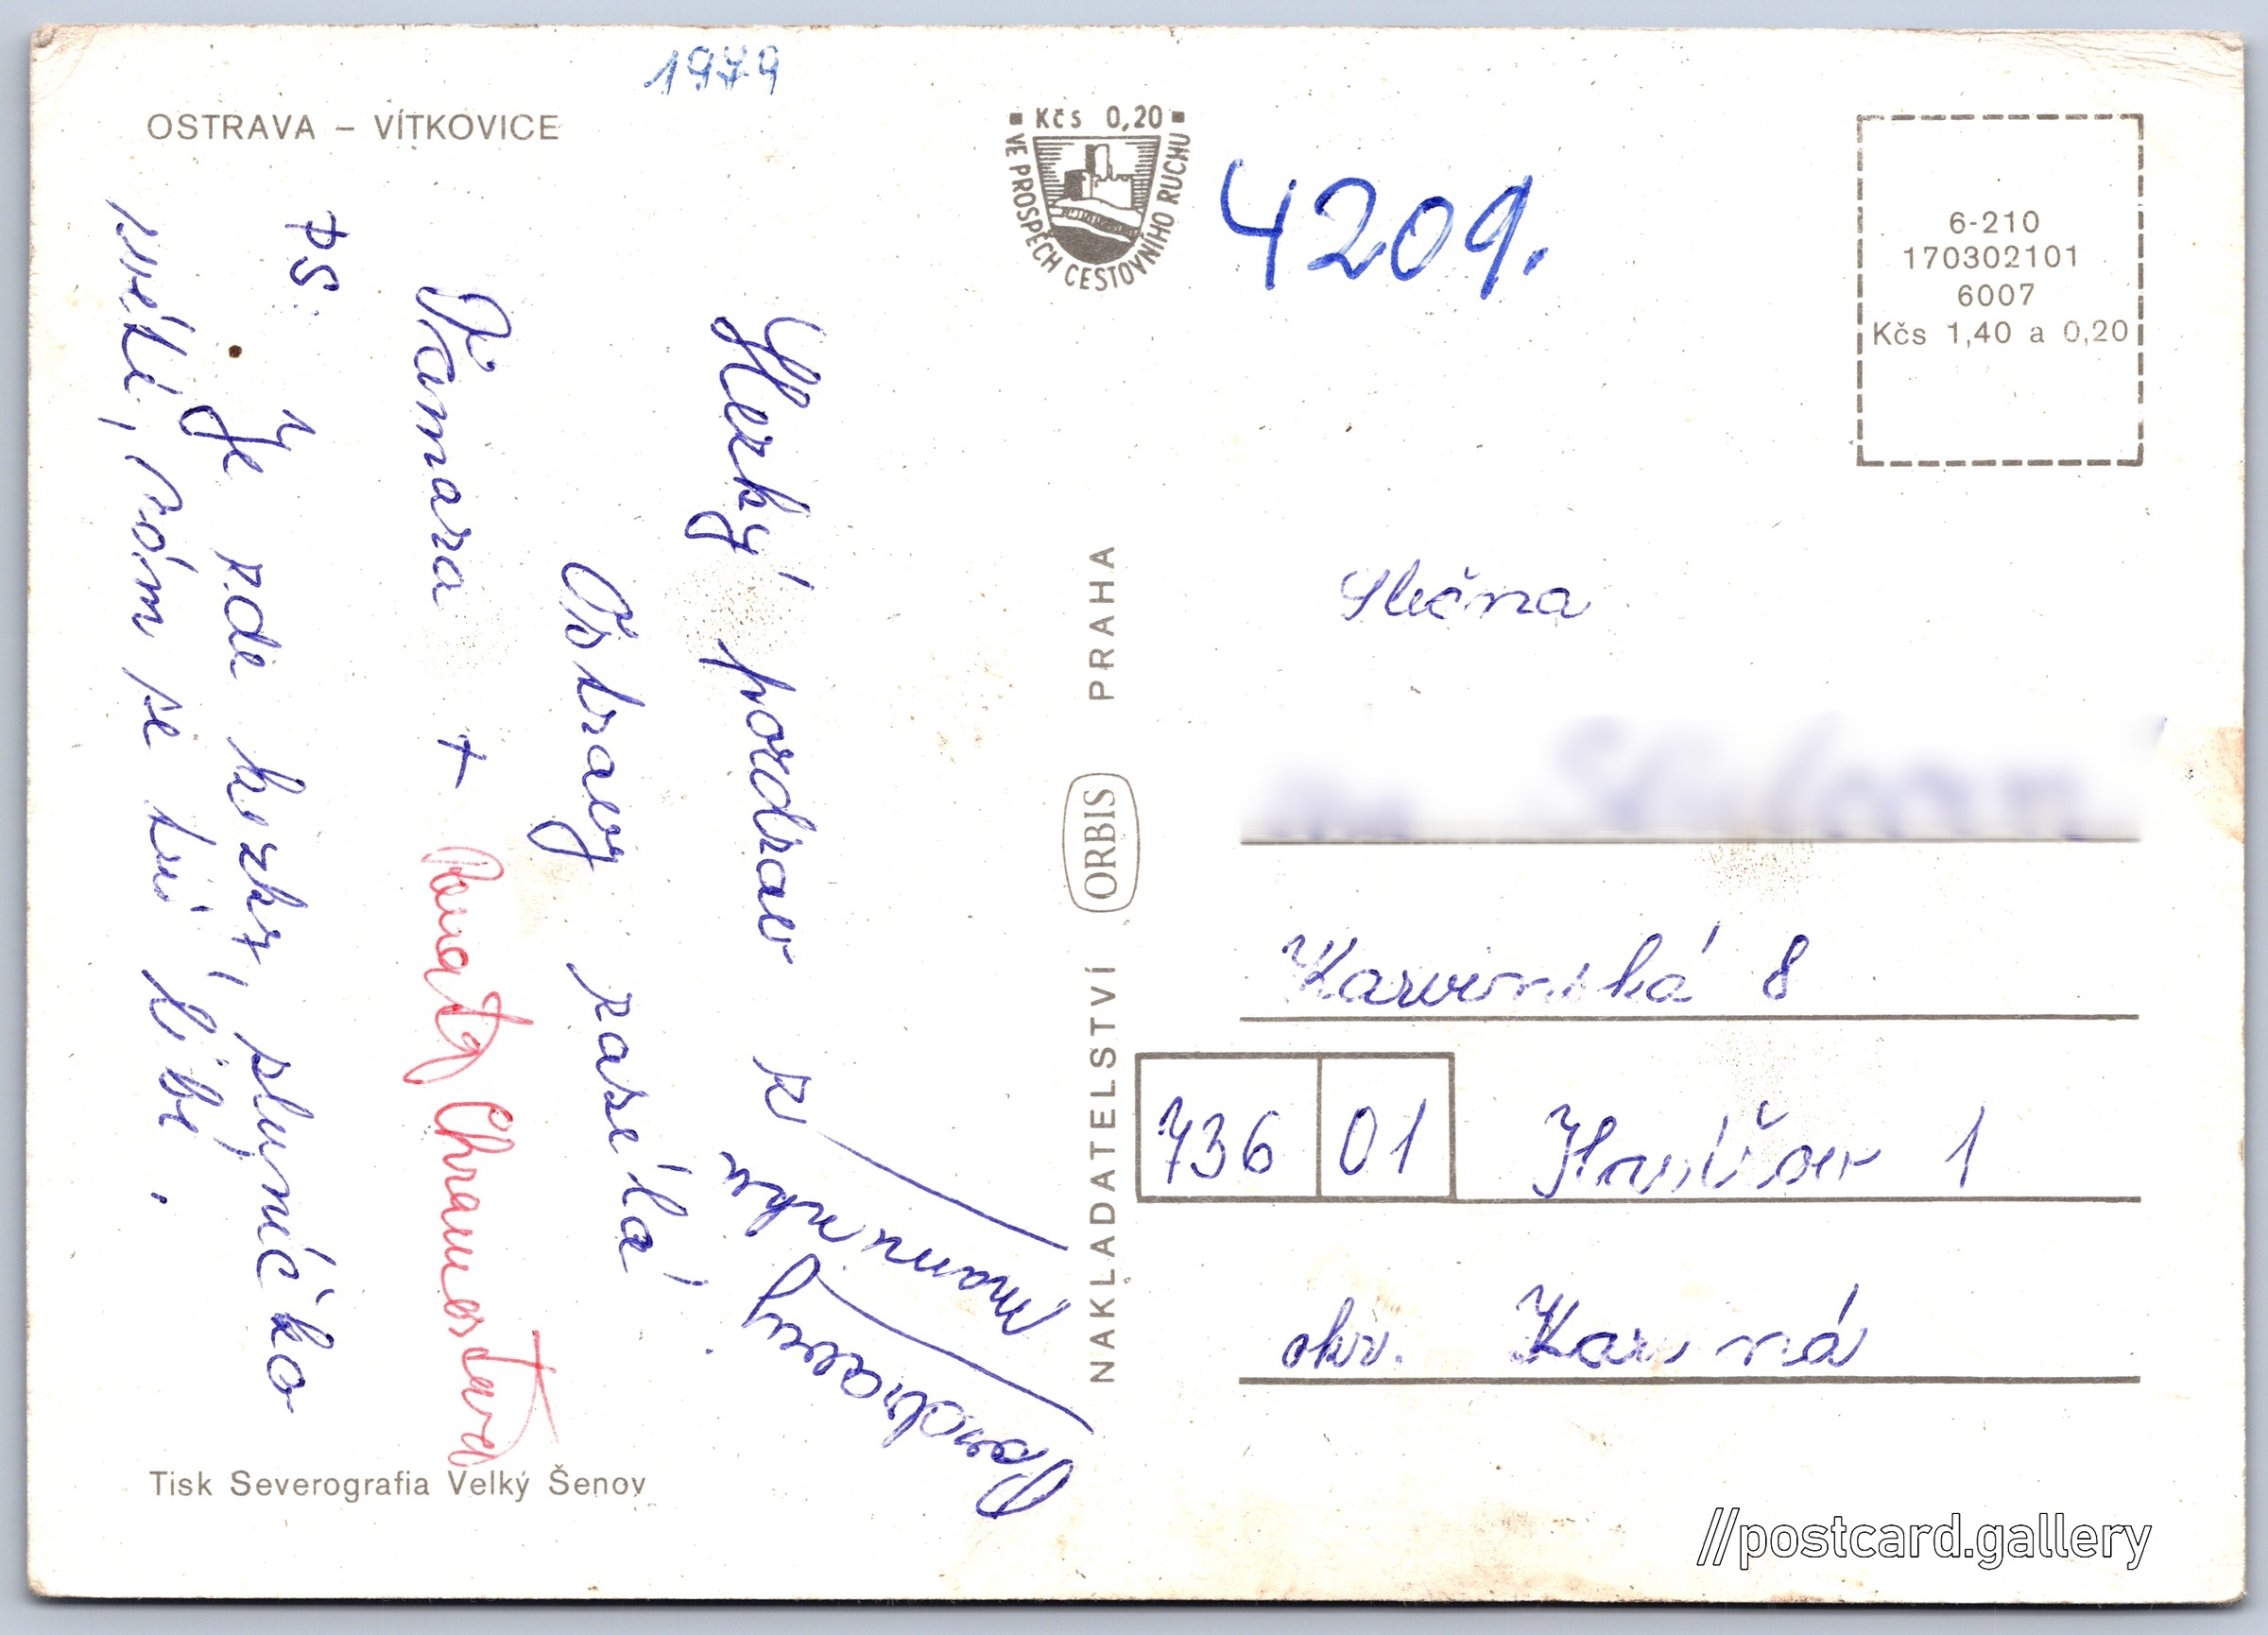 1979
OSTRAVA – VÍTKOVICE
Kčs 0,20
VE PROSPĚCH CESTOVNÍHO RUCHU
4209.
6-210
170302101
6007
Kčs 1,40 a 0,20
Hezký pozdrav z
Ostravy zasílá
Tamara + Renata
PS:
Je zde hezky, sluníčko
svítí, nám se líbí.
Pozdravuj
maminku
NAKLADATELSTVÍ ORBIS PRAHA
Slečna
Karvinská 8
736 01 Havířov 1
okr. Karviná
Tisk Severografia Velký Šenov
//postcard.gallery